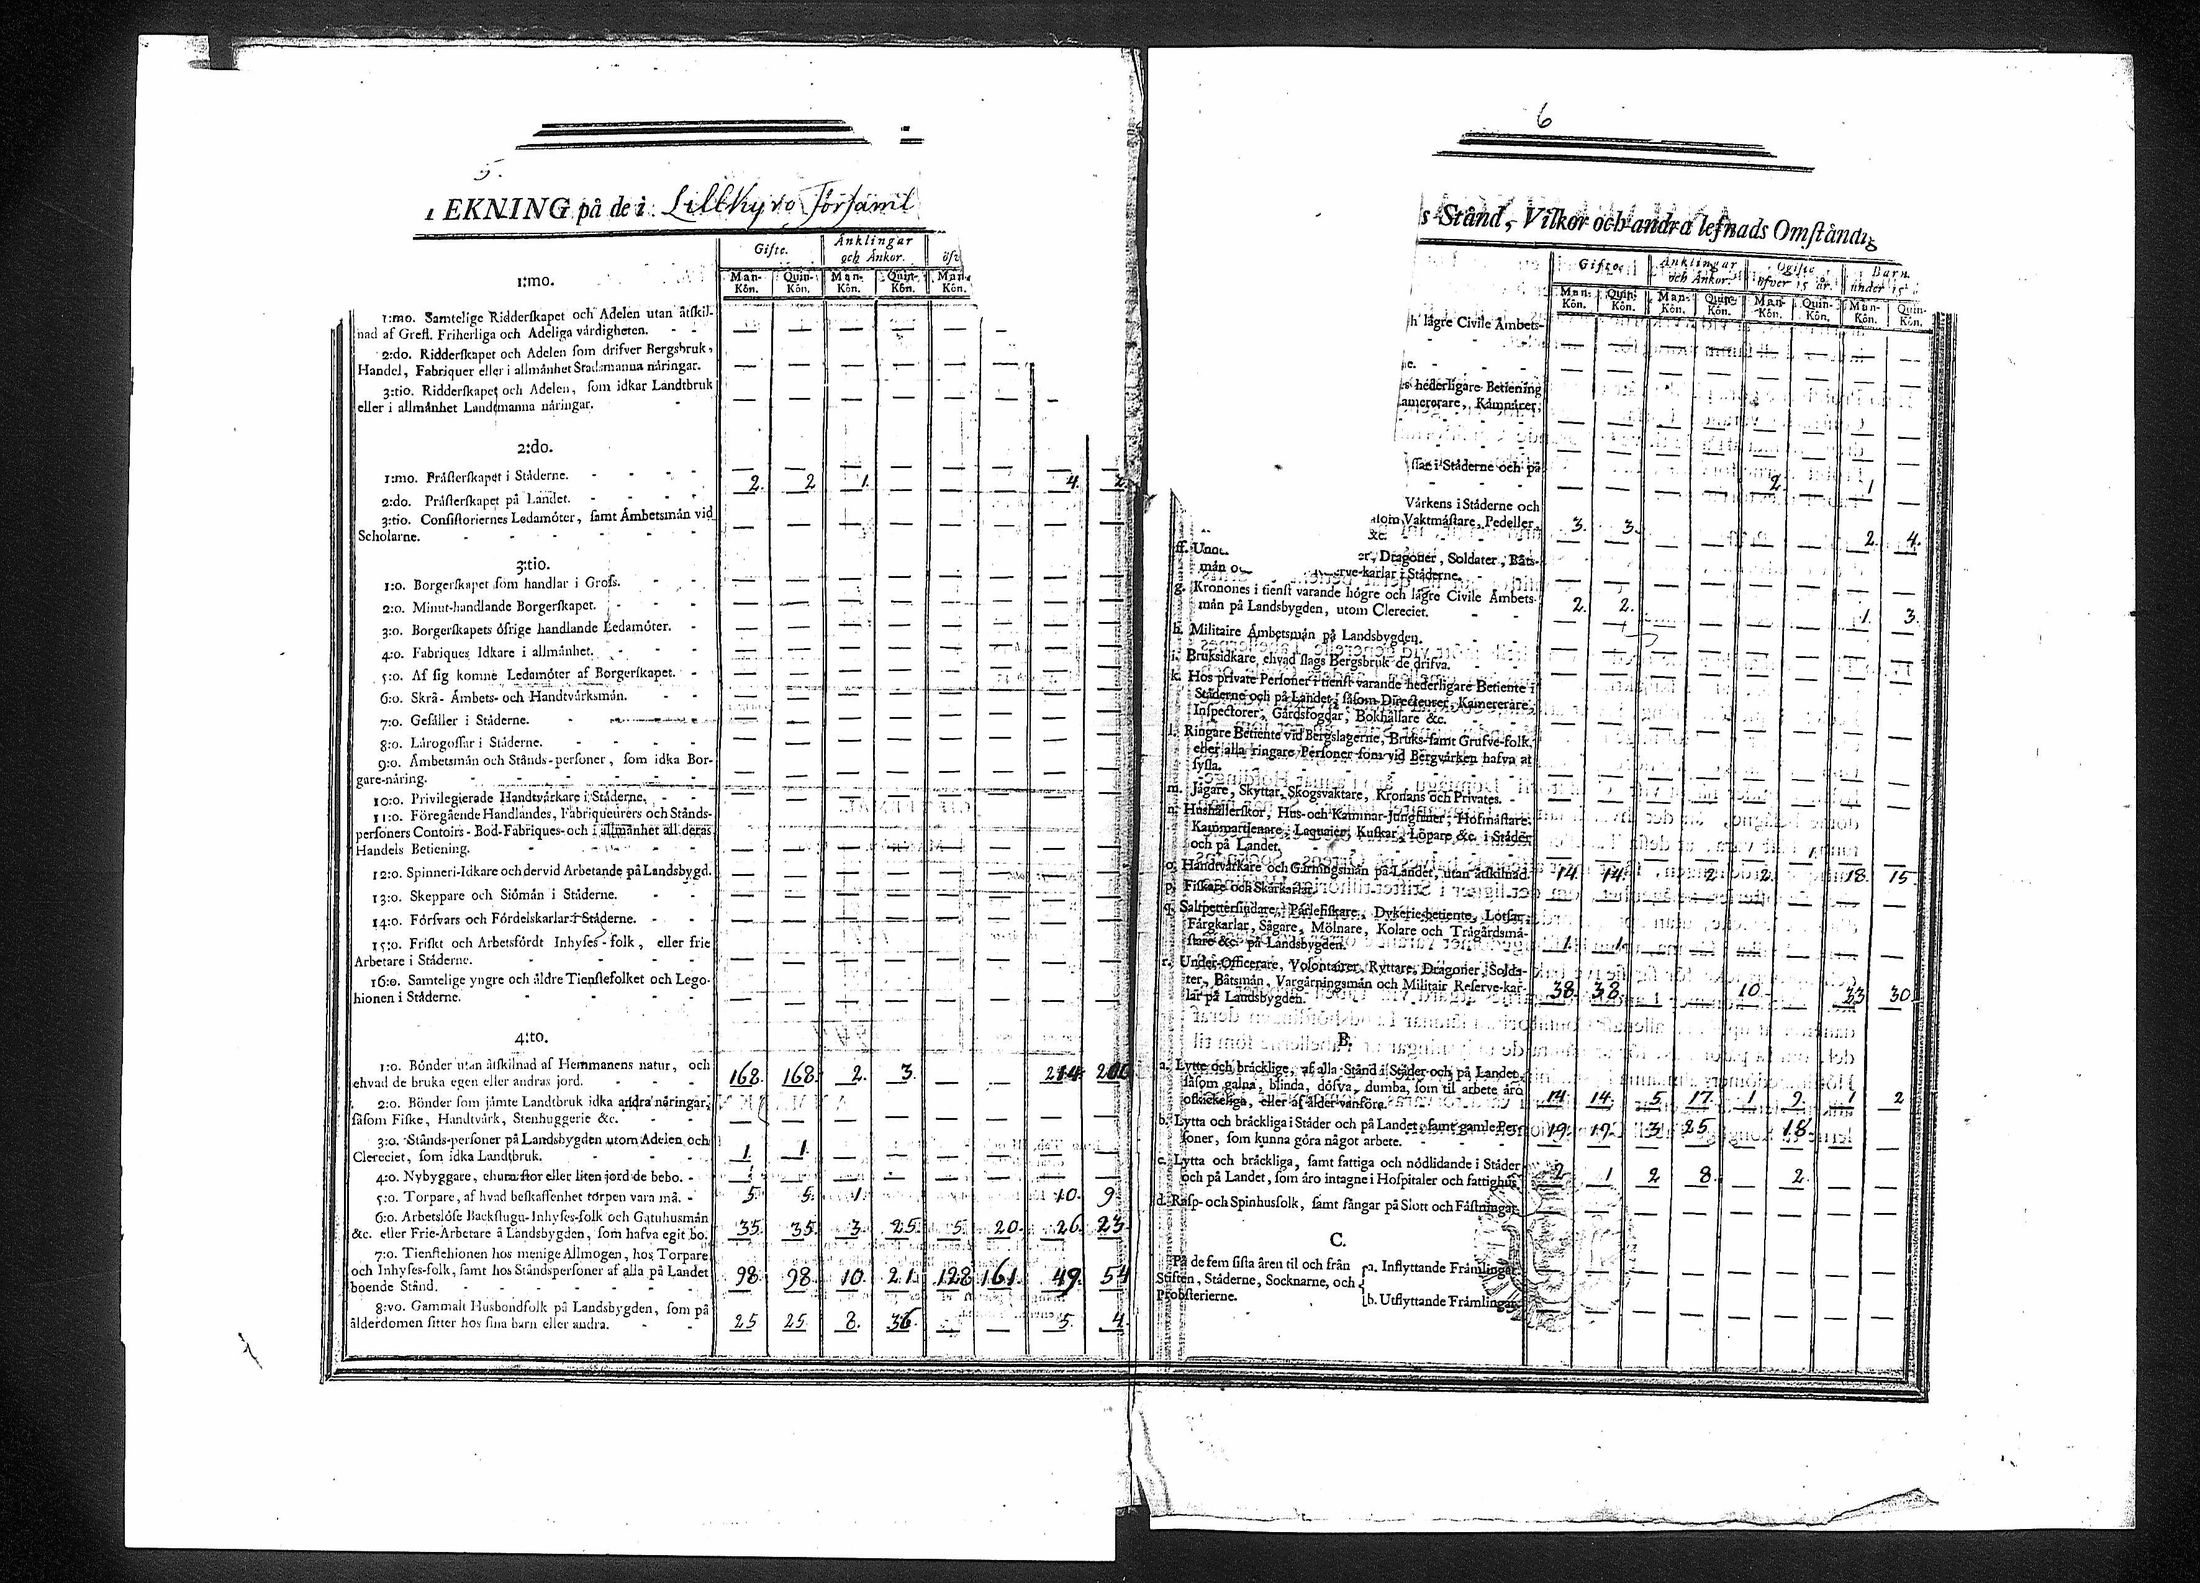 5.
EKNING på de i Lillkyro Församl
Gifte. Änklingar och Änkor. öfv
Man-Kön. Quin-Kön. Man-Kön. Quin-Kön. Man-Kön.
1:mo.
1:mo. Samtelige Ridderskapet och Adelen utan åtskil-
nad af Grefl. Friherliga och Adeliga värdigheten. - - — — — — — —
2:do. Ridderskapet och Adelen som drifver Bergsbruk,
Handel, Fabriquer eller i allmänhet Stadsmanna näringar. — — — — — — —
3:tio. Ridderskapet och Adelen, som idkar Landtbruk
eller i allmänhet Landtmanna näringar. - — — — — — — —
2:do.
1:mo. Prästerskapet i Städerne. - - - - — — — — — — — —
2:do. Prästerskapet på Landet. - - - - 2. 2 1. — — — 4. 2.
3:tio. Consistoriernes Ledamöter, samt Ämbetsmän vid
Scholarne. - - - - - — — — — — — — —
3:tio.
1:o. Borgerskapet som handlar i Gross. - - — — — — — — — —
2:o. Minut-handlande Borgerskapet. - - - — — — — — — — —
3:o. Borgerskapets öfrige handlande Ledamöter. - — — — — — — — —
4:o. Fabriques Idkare i allmänhet. - - - — — — — — — — —
5:o. Af sig komne Ledamöter af Borgerskapet. - — — — — — — — —
6:o. Skrå- Ämbets- och Handtvärksmän. - - — — — — — — — —
7:o. Gesäller i Städerne. - - — — — — — — — —
8:o. Lärogossar i Städerne. - - - - — — — — — — — —
9:o. Ämbetsmän och Stånds-personer, som idka Bor-
gare-näring. - - - - - — — — — — — — —
10:o. Privilegierade Handtvärkare i Städerne. - - — — — — — — — —
11:o. Föregående Handlandes, Fabriqueurers och Stånds-
personers Contoirs - Bod-Fabriques-och i allmänhet all deras
Handels Betiening. - - - - — — — — — — — —
12:o. Spinneri-Idkare och dervid Arbetande på Landsbygd. — — — — — — — —
13:o. Skeppare och Siömän i Städerne. - - — — — — — — — —
14:o. Försvars och Fördelskarlar i Städerne. - - — — — — — — — —
15:o. Friskt och Arbetsfördt Inhyses-folk, eller frie
Arbetare i Städerne. - - - - — — — — — — — —
16:o. Samtelige yngre och äldre Tienstefolket och Lego-
hionen i Städerne. - - - - — — — — — — — —
4:to.
1:o. Bönder utan åtskilnad af Hemmanens natur, och
ehvad de bruka egen eller andras jord. - - - 168. 168. 2. 3. — — 214. 200
2:o. Bönder som jämte Landtbruk idka andra näringar,
såsom Fiske, Handtvärk, Stenhuggerie &c. - - — — — — — — — —
3:o. Stånds-personer på Landsbygden utom Adelen och
Clereciet, som idka Landtbruk. - - - - 1. 1. — — — — — —
4:o. Nybyggare, ehuru stor eller liten jord de bebo. - — — — — — — — —
5:o. Torpare, af hvad beskaffenhet torpen vara må. - 5. 5. 1. — — — 10. 9
6:o. Arbetslöse Backstugu-Inhyses-folk och Gatuhusmän
&c. eller Frie-Arbetare å Landsbygden, som hafva egit bo. 35. 35. 3. 25. 5. 20. 26. 23.
7:o. Tienstehionen hos menige Allmogen, hos Torpare
och Inhyses-folk, samt hos Ståndspersoner af alla på Landet
boende Stånd. - - - - - 98. 98. 10. 21. 128 161. 49. 54
8:vo. Gammalt Husbondfolk på Landsbygden, som på
ålderdomen sitter hos sina barn eller andra. - - 25 25. 8. 36. — — 5. 4.
6
s Stånd, Vilkor och andra lefnads Omständig
Gifte. Änklingar och Änkor. Ogifte öfver 15 år. Barn under 15
Man-Kön. Quin-Kön. Man-Kön. Quin-Kön. Man-Kön. Quin-Kön. Man-Kön. Quin-Kön.
h lägre Civile Ämbets-
ne. - - - -
s hederligare Betiening
amererare, Kämnärer,
ssar i Städerne och på
2. 1
Värkens i Städerne och
Vaktmästare, Pedeller,
&c. 3. 3. — — — — 2. 4.
ff. r, Dragoner, Soldater, Båts-
män o rve-karlar i Städerne. - — — — — — — — —
g. Kronones i tienst varande högre och lägre Civile Ämbets-
män på Landsbygden, utom Clereciet. - - 2. 2. — — — — 1. 3.
h. Militaire Ämbetsmän på Landsbygden. — — — — — — — —
i. Bruksidkare ehvad slags Bergsbruk de drifva. - — — — — — — — —
k. Hos private Personer i tienst varande hederligare Betiente i
Städerne och på Landet, såsom Directeurer, Kamererare,
Inspectorer, Gårdsfogdar, Bokhållare &c. — — — — — — — —
l. Ringare Betiente vid Bergslagerne, Bruks-samt Grufve-folk,
eller alla ringare Personer som vid Bergvärken hafva at
sysla. — — — — — — — —
m. Jägare, Skyttar, Skogsvaktare, Kronans och Privates. - — — — — — — — —
n. Hushållerskor, Hus-och Kammar-Jungfrurer, Hofmästare,
Kammartienare, Laquaier, Kuskar, Löpare &c. i Städer
och på Landet. — — — — — — — —
o. Handtvärkare och Gärningsmän på Landet, utan åtskilnad. 14. 14. — 2. 2. — 18. 15.
p. Fiskare och Skärkarlar. — — — — — — — —
q. Saltpettersiudare, Pärlefiskare, Dykerie-betiente, Lotsar,
Färgkarlar, Sågare, Mölnare, Kolare och Trägårdsmä-
stare &c. på Landsbygden. 1. 1. — — — — — —
r. Under-Officerare, Volontairer, Ryttare, Dragoner, Solda-
ter, Båtsmän, Vargärningsmän och Militair Reserve-kar-
lar på Landsbygden. 38. 38. — — 10. — 33 30
B.
a. Lytte och bräcklige, af alla Stånd i Städer och på Landet,
såsom galna, blinda, döfva, dumba, som til arbete äro
oskickeliga, eller af ålder vanföra. 14. 14. 5. 17. 1 9. 1 2
b. Lytta och bräckliga i Städer och på Landet, samt gamle Per-
soner, som kunna göra något arbete. - - 19. 19. 3 25. — 18. — —
c. Lytta och bräckliga, samt fattiga och nödlidande i Städer
och på Landet, som äro intagne i Hospitaler och fattighus. 2 1 2 8. — 2. — —
d. Rasp- och Spinhusfolk, samt fångar på Slott och Fästningar. — — — — — — — —
C.
På de fem sista åren til och från
Stiften, Städerne, Socknarne, och
Probsterierne.
a. Inflyttande Främlingar. — — — — — — — —
b. Utflyttande Främlingar. — — — — — — — —